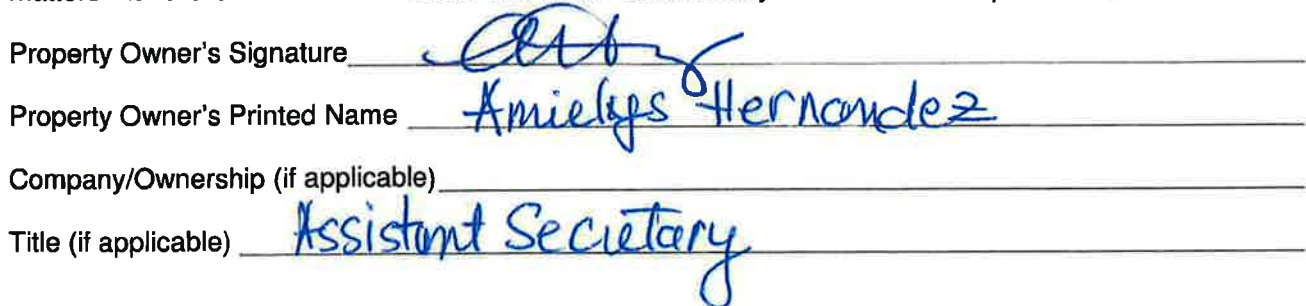 Property Owner's Signature
Property Owner's Printed Name Amielys Hernandez
Company/Ownership (if applicable)
Title (if applicable) Assistant Secretary